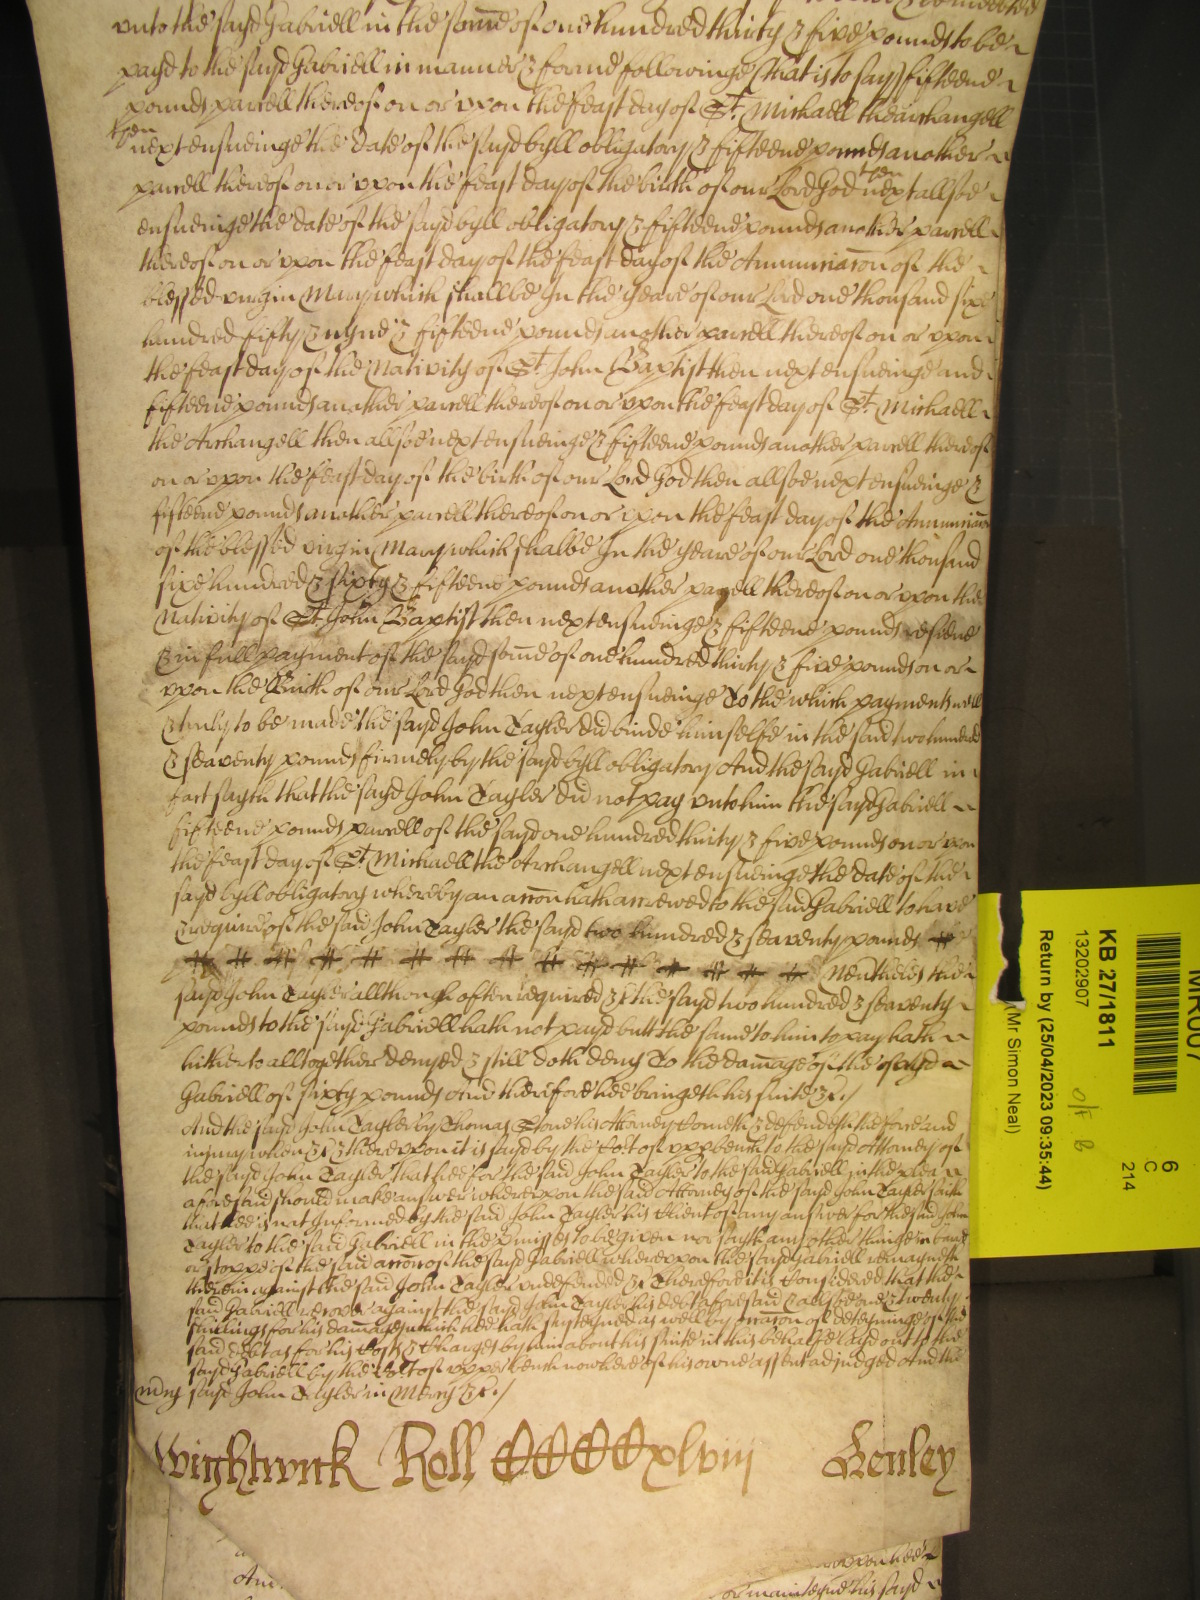 unto the sayd Gabriell in the some of one hundred thirty & five pounds to be
payd to the sayd Gabriell in manner & forme followinge (that is to say) fifteene
pounds parcell thereof on or upon the feast day of St. Michaell the archangell
then
next ensueinge the date of the sayd byll obligatory & fifteene pounds another
then
parcell thereof on or upon the feast day of the birth of our Lord God next allsoe
ensueinge the date of the sayd byll obligatory & fifteene pounds another parcell
thereof on or upon the feast day of the feast day of the Annunciacon of the
blessed virgin Mary which shall be In the yeare of our Lord one thousand sixe
hundred fifty & nyne & fifteene pounds another parcell thereof on or upon
the feast day of the Nativity of St. John Baptist then next ensueinge and
fifteene pounds another parcell thereof on or upon the feast day of St. Michaell
the Archangell then allsoe next ensueinge & fifteene pounds another parcell thereof
on or upon the feast day of the birth of our Lord God then allsoe next ensueinge &
fifteene pounds another parcell thereof on or upon the feast day of the Annunciacon
of the blessed virgin Mary which shalbe In the yeare of our Lord one thousand
sixe hundred & sixty & fifteene pounds another parcell thereof on or upon the
Nativity of St. John Baptist then next ensueinge & fifteene pounds residue
& in full payment of the sayd some of one hundred thirty & five pounds on or
upon the Birth of our Lord God then next ensueinge To the which payments well
& truly to be made the sayd John Tayler did binde himselfe in the said two hundred
& seaventy pounds firmely by the sayd byll obligatory And the sayd Gabriell in
fact sayth that the sayd John Tayler did not pay unto him the sayd Gabriell
fifteene pounds parcell of the sayd one hundred thirty & five pounds on or upon
the feast day of St. Michaell the Archangell next ensueinge the date of the
sayd byll obligatory whereby an accon hath accrewed to the said Gabriell to have
& require of the said John Tayler the sayd two hundred & seaventy pounds
Neverthelesse the
sayd John Tayler allthough often required &c the sayd two hundred & seaventy
pounds to the sayd Gabriell hath not payd butt the same to him to pay hath
hitherto alltogether denyed & still doth deny To the damage of the sayd
Gabriell of sixty pounds And therefore hee bringeth his suite &c./
And the sayd John Tayler by Thomas Stone his Attorney cometh & defendeth the force and
injury when &c & thereupon it is sayd by the Cort of upp bench to the sayd Attorney of
the sayd John Tayler that hee for the said John Tayler to the said Gabriell in the plea
aforesaid should make answer whereupon the said Attorney of the sayd John Tayler saith
that hee is not Informed by the said John Tayler his Client of any answer for the said John
Tayler to the said Gabriell in the premisses to be given nor sayth any other thinge in barr
or stoppe of the said accon of the sayd Gabriell whereupon the sayd Gabriell remayneth
therein against the said John Tayler undefended &c Therefore it is Considered that the
said Gabriell recover against the sayd John Tayler his debt aforesaid & allsoe one & twenty
shillings for his damages which hee hath susteyned as well by occacon of deteyninge of the
said debt as for his Costs & Charges by him about his suite in this behalfe layd out to the
sayd Gabriell by the Cort of upper bench now here of his owne assent adjudged And the
mcy sayd John Tayler in Mercy &c./
Wightwick Roll CCCCxlviii Henley
upon hee
or mainteyne his sayd
MR007
6
C
214
KB 27/1811
13202907
o/f B
Return by (25/04/2023 09:35:44)
(Mr Simon Neal)